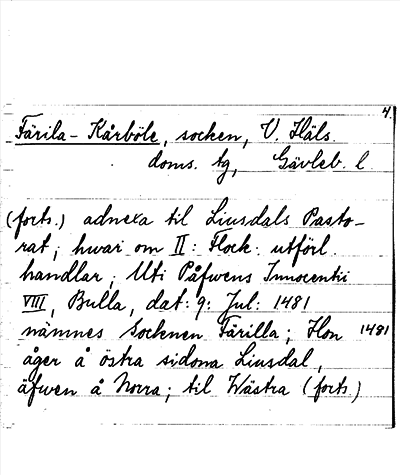 4.
Färila-Kårböle, socken, V. Häls.
doms. tg, Gävleb. l.
(forts.) adnexa til Liusdals Pasto-
rat; hwar om II: Flock: utförl.
handlar; Uti Påfwens Innocentii
VIII, Bulla, dat: 9: Jul: 1481
nämnes Socknen Färilla; Hon 1481
åger å östra sidona Liusdal,
äfwen å Norra; til Wästra (forts.)